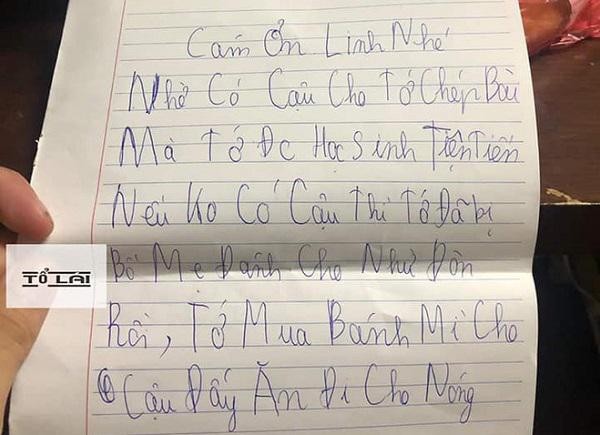 Cám Ơn Linh Nhé
Nhờ Có Cậu Cho Tớ Chép Bài
Mà Tớ Đc Học Sinh Tiện Tiến
Nếu Ko Có Cậu Thì Tớ Đã bị
Bố Mẹ Đánh Cho Như Đòn
Rồi, Tớ Mua Bánh Mì Cho
Cậu Đấy Ăn Đi Cho Nóng
TỔ LÁI